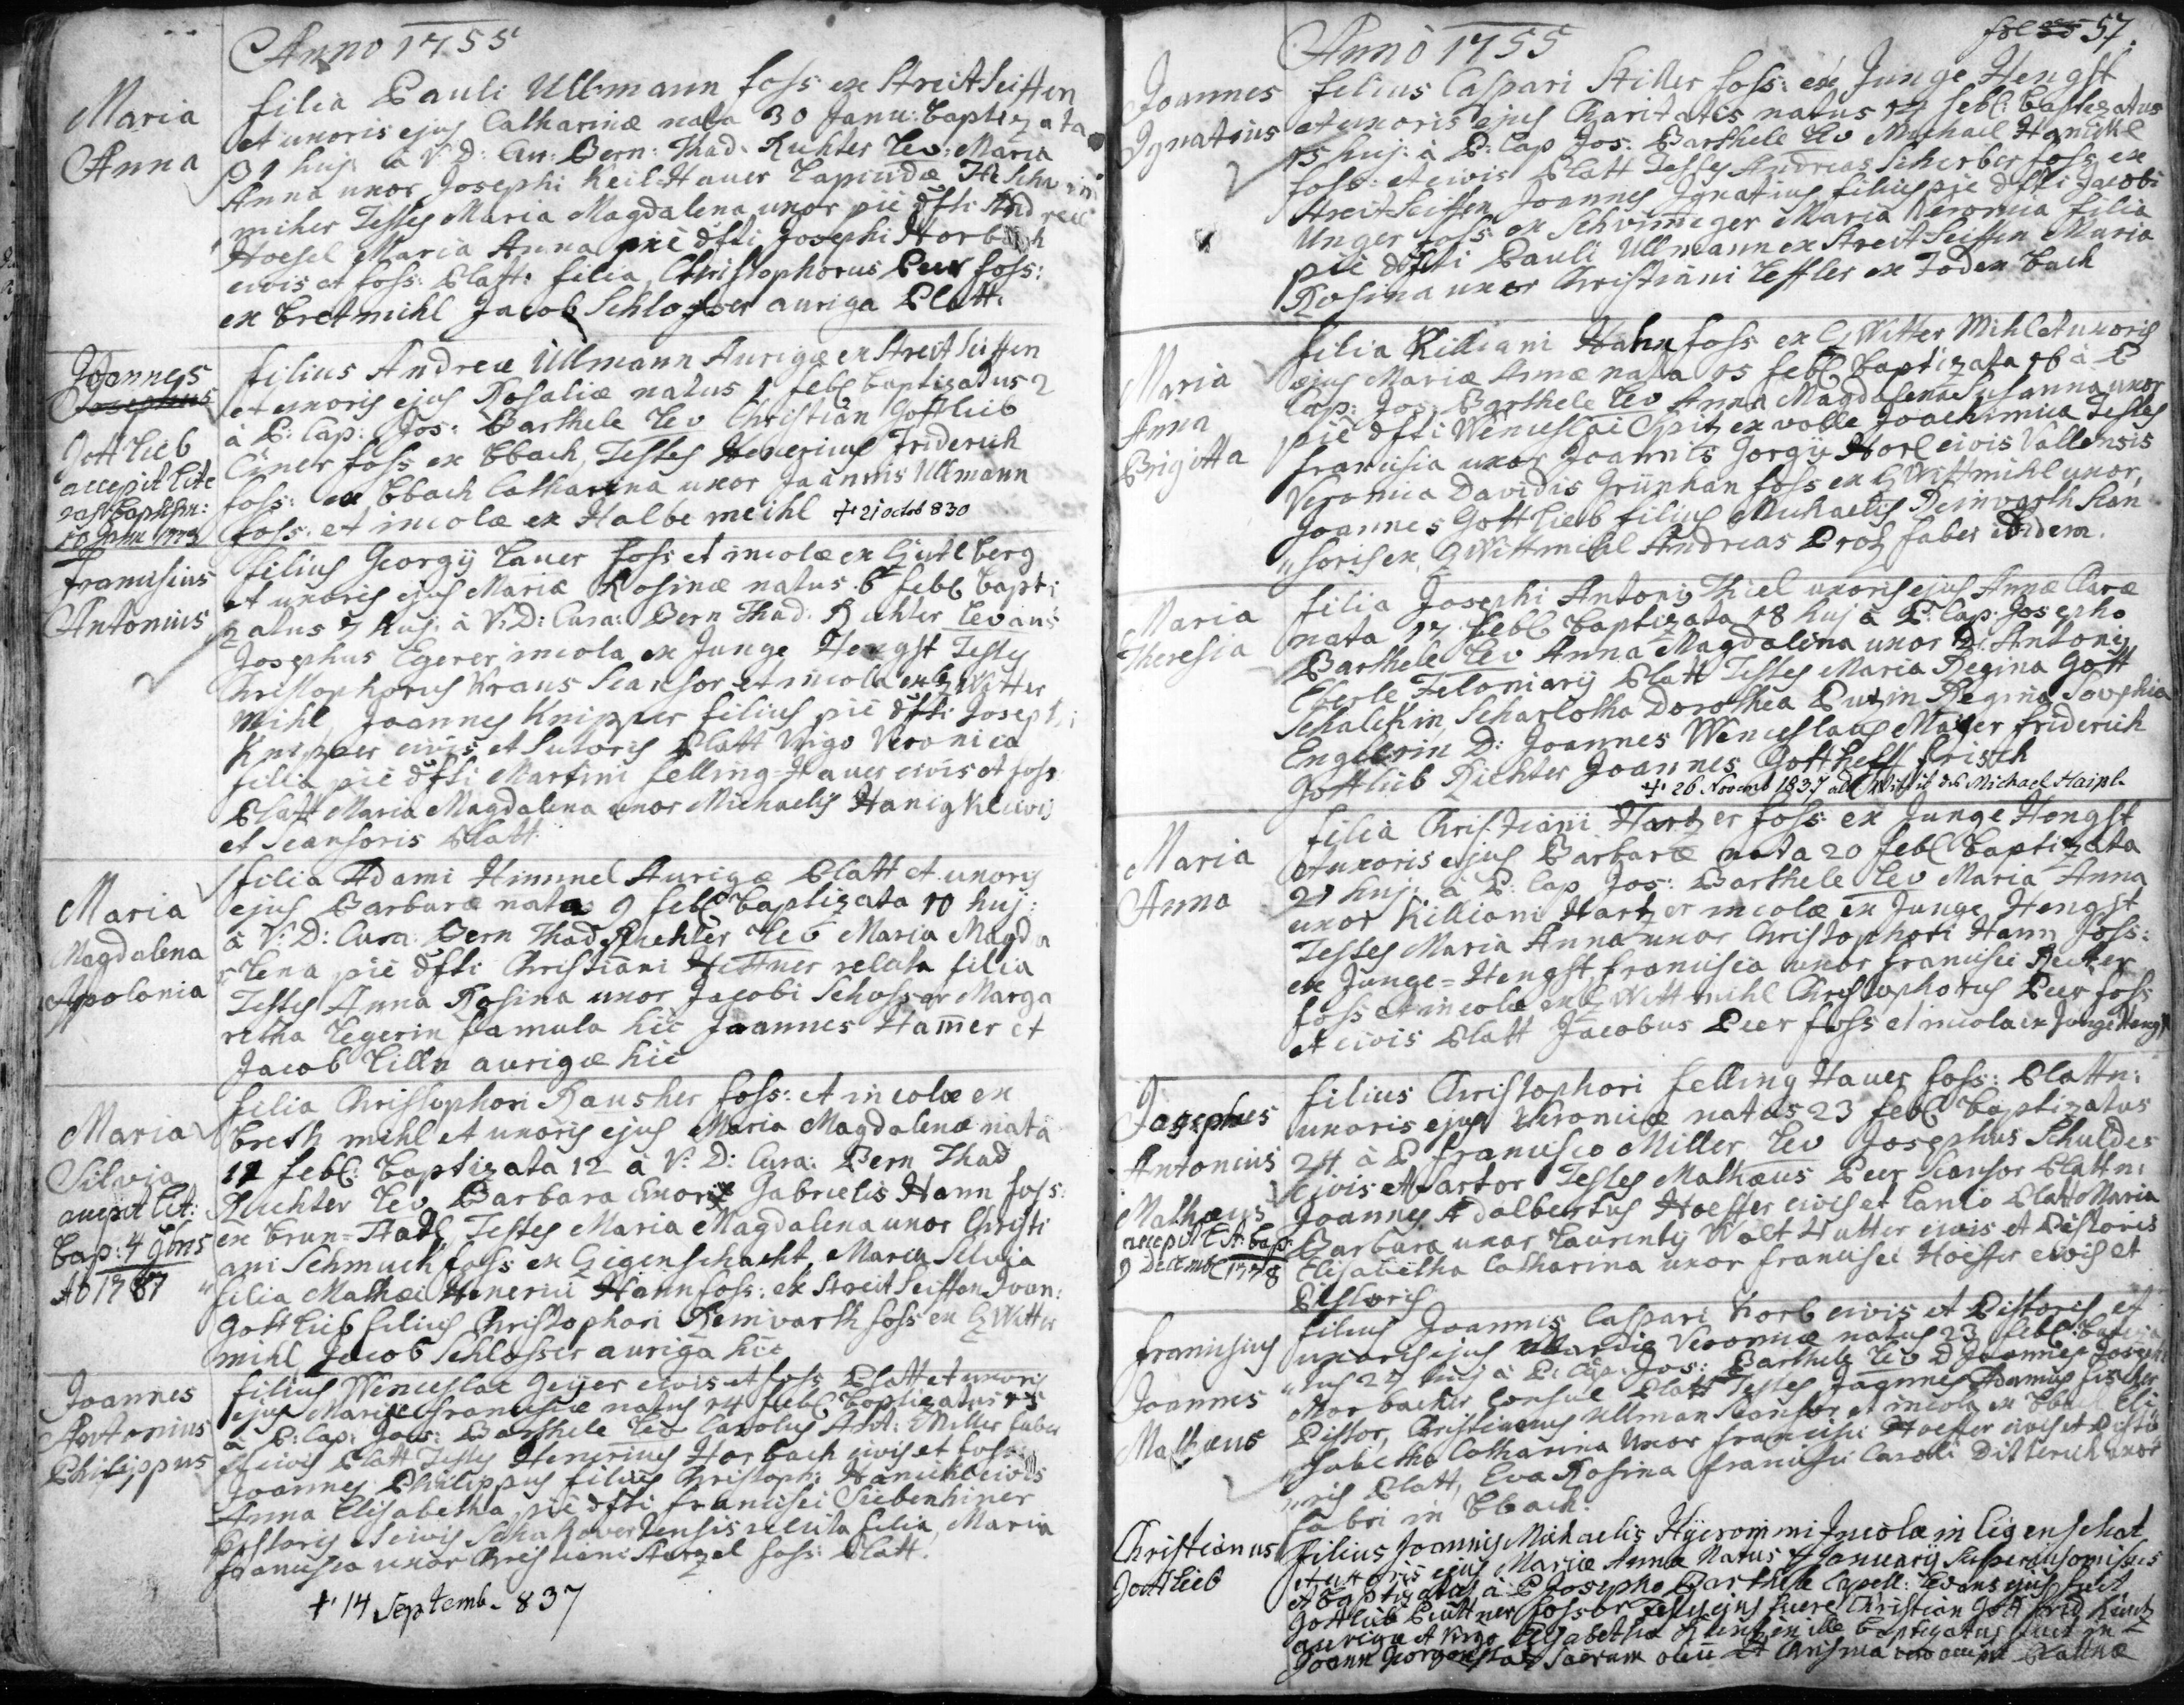 Anno 1755
Maria
Anna
filia Pauli Ullmann foss: ex StreitSeiffen
et uxoris ejus Catharinæ nata 30 Janu: baptizata
31 huj: à V: D: Cur: Bern: Thad: Richter Lev: Maria
Anna uxor Josephi Keil=Hauer
miher Testes Maria Magdalena uxor pie dfti Andreæ
Hoesel Maria Anna pie dfti Josephi Horbach
civis et foss: Platt: filia, Christophorus Peer foss:
ex Bretmihl Jacob Schlosser auriga Platt:
Joannes
Josephus
Gottlieb
accepit lite
ras baptism:
filius Andreæ Ullmann Aurigæ ex Streit Seiffen
et uxoris ejus Rosaliæ natus 1 feb: baptizatus 2
à P: Cap: Jos: Barthele Lev Christian Gottlieb
foss ex Bbach, Testes Henericus Friderich
foss: ex Bbach Catharina uxor Joannis Ullmann
foss: et incolæ ex Halbe meihl † 21 octob 830
Francisius
Antonius
filius Georgij Lauer foss et incolæ ex
et uxoris ejus Mariæ Rosinæ natus 6 feb: bapti
zatus 7 huj: à V: D: Cura: Bern Thad: Richter Levans
Josephus Egerer incola ex Junge Hengst Testes
Christophorus Kraus Scansor et incola ex Zwitter
Mihl Joannes Knipper filius pie dfti Josephi
Knipper civis et Sutoris Platt Virgo Veronica
filia pie dfti Martini Felling=Hauer civis et foss
Platt Maria Magdalena uxor Michaelis Hanigkl civis
et Scansoris Platt
Maria
Magdalena
Apolonia
filia Adami Himmel Aurigæ Platt et uxoris
ejus Barbaræ nata 9 feb: baptizata 10 huj:
à V: D: Cura: Bern Thad Richter Lev Maria Magda
lena pie dfti Christiani Hüttner relicta filia
Testes Anna Rosina uxor Jacobi Schosser Marga
retha Legerin famula hic Joannes Hamer et
Jacob Lilln aurigæ hic
Maria
Silvia
accepit lit:
bap: 4 9bris
Ao 1787
filia Christophori Rausher foss: et incolæ ex
Breth mihl et uxoris ejus Maria Magdalenæ nata
11 feb: baptizata 12 à V: D: Cura: Bern Thad
Richter Lev Barbara uxor Gabrielis Hann foss:
ex Testes Maria Magdalena uxor Christi
ani Schmuck foss ex Maria Silvia
filia Mathæi Hann foss: ex Streit Seiffen Joan:
Gottlieb filius Christophori Reinwarth foss ex Zwitter
mihl Jacob Schlosser auriga hic
Joannes
Antonius
Philippus
filius Wenceslai Geyer civis et foss Platt et uxoris
ejus Mariæ Francisiæ natus 14 feb: baptizatus 15
à P: Cap: Jos: Barthele Lev Carolus Ant: Miller faber
et civis Platt Testes Henericus Horbach civis et foss:
Joannes Philippus filius Christoph: Hanickl civis
Anna Elisabetha pie dfti francisci Siebenhiner
relicta filia, Maria
francisca uxor Christiani Stutzel foss: Platt.
† 14 Septemb. 837
fol 57.
Anno 1755
Joannes
Ignatius
filius Caspari Stiller foss: ex Junge Hengst
et uxoris ejus Charitatis natus 14 feb: baptizatus
15 huj: à P: Cap Jos: Barthele Lev Michael Hanickl
foss: et civis Platt Testes Andreas Scherber foss ex
StreitSeiffen Joannes Ignatius filius pie dfti Jacobi
Unger foss ex Schwimeger Maria Veronica filia
pie dfti Pauli Ullmann ex StreitSeiffen Maria
Rosina uxor Christiani Leffler ex Toden bach
Maria
Anna
Brigitta
filia Killiani Hahn foss ex Zwitter Mihl et uxoris
ejus Mariæ Annæ nata 15 feb: baptizata 16 à P
Cap: Jos: Barthele Lev Anna Magdalena Susanna uxor
pie dfti Wenceslai Opitz ex valle Joachimica Testes
francisia uxor Joannis Gorgij Horl civis Vallensis
Veronica Davidis Grünhan foss ex Zwittmihl uxor,
Joannes Gottlieb filius Michaelis Reinwarth Scan
„soris ex Zwittmihl Andreas Protz faber ibidem.
Maria
Theresia
filia Josephi Antonij Thiel uxoris ejus Annæ Claræ
nata 17 feb: baptizata 18 huj à P: Cap: Josepho
Barthele Lev Anna Magdalena uxor D: Antonij
Eberle Teloniarij Platt Testes Maria Regina Gott
Schalckin, Scharlotha Dorothea Putzin Regina Sophia
Englerin D: Joannes Wenceslaus Mayer friderich
Gottlieb Richter Joannes Gotthelff frisch
† 26 Novemb 1837 als Wittib des Michael Haipl.
Maria
Anna
filia Christiani Hartzer foss: ex Junge Hengst
et uxoris ejus Barbaræ nata 20 feb: baptizata
21 huj: à P: Cap Jos: Barthele Lev Maria Anna
uxor Killiani Hartzer incolæ ex Junge Hengst
Testes Maria Anna uxor Christophori Hann foss:
ex Junge=Hengst, francisca uxor francisci Recker
foss et incolæ ex Zwittmihl Christophorus Peer foss
et civis Platt Jacobus Peer foss et incola ex Junge Hengst
Josephus
Antonius
Mathæus
accepit lit: bap:
9 Decemb 1778
filius Christophori Felling Hauer foss: Plattn:
uxoris ejus Veronicæ natus 23 feb: baptizatus
24 à P francisco Miller Lev Josephus Schuldes
civis et Sartor Testes Mathæus Peer Scansor Plattn:
Joannes Adalbertus Hoeffer civis et Lanio Platt Maria
Barbara uxor Laurentij Walt Hutter civis et Pistoris
Elisabetha Catharina uxor francisci Hoeffer civis et
Pistoris
Francisius
Joannes
Mathæus
filius Joannis Caspari Korb civis et Pistoris et
uxoris ejus Mariæ Veronicæ natus 23 feb: baptiza
„tus 24 huj à P: Cap: Jos: Barthele Lev D Joannes Joseph
Morbacher Consul Platt Testes Joannes Adamus fischer
Pistor, Christianus Ullman Scansor et incola ex Bbach Eli
„sabetha Catharina uxor francisci Hoeffer civis et Pisto
„ris Platt, Eva Rosina francisci Caroli Ditterich uxor
fabri in Bbach.
Christianus
Gottlieb
filius Joannis Michaelis Hyeronimi Incolæ in
et uxoris ejus Mariæ Annæ Natus 4 January
et baptizatus à P Josepho Barthele Capell: levans ejus fuit
Gottlieb Püttner fossor Testes ejus fuere Christian Gottfrid
aurigæ et Virgo Elisabetha ille baptizatus fuit in
Joann Sacrum oleu et Chrisma vero accepit Plattnæ